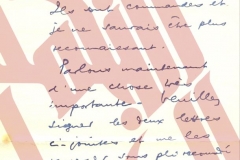 Ils sont commandés et
je ne saurais être plus
reconnaissant.
Parlons maintenant
d'une chose très
importante - veuillez
signer les deux lettres
ci-jointes et me les
sous pli recommandé